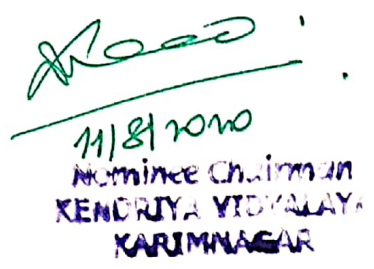 11/8/2020
Nominee Chairman
KENDRIYA VIDYALAYA
KARIMNAGAR